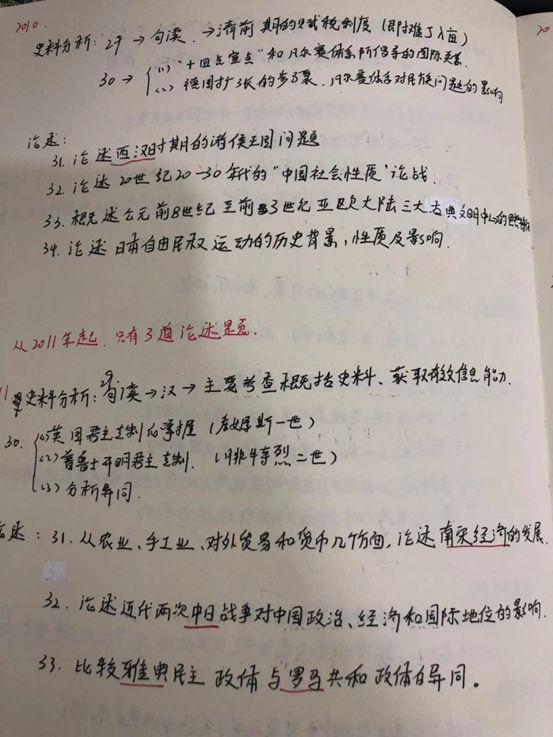 2010.
史料分析：29 → 句读. → 清前期的赋税制度（即摊丁入亩）
30 → (1) "十四点宣言"和凡尔赛体系所倡导的国际关系.
(2) 德国扩张的步骤. 凡尔赛体系对民族问题的影响
论述：
31. 论述西汉时期的诸侯王国问题
32. 论述20世纪20-30年代的"中国社会性质"论战.
33. 概述公元前8世纪至前3世纪亚欧大陆三大古典文明中心的
34. 论述日本自由民权运动的历史背景，性质及影响.
从2011年起，只有3道论述题.
11 史料分析：29 句读 → 汉 → 主要考查概括史料、获取有效信息能力.
30. (1) 英国君主专制的掌握（詹姆斯一世）
(2) 普鲁士开明君主专制.（腓特烈二世）
(3) 分析异同.
论述：31. 从农业、手工业、对外贸易和货币几个方面，论述南宋经济的发展.
32. 论述近代两次中日战争对中国政治、经济和国际地位的影响.
33. 比较雅典民主政体与罗马共和政体的异同。